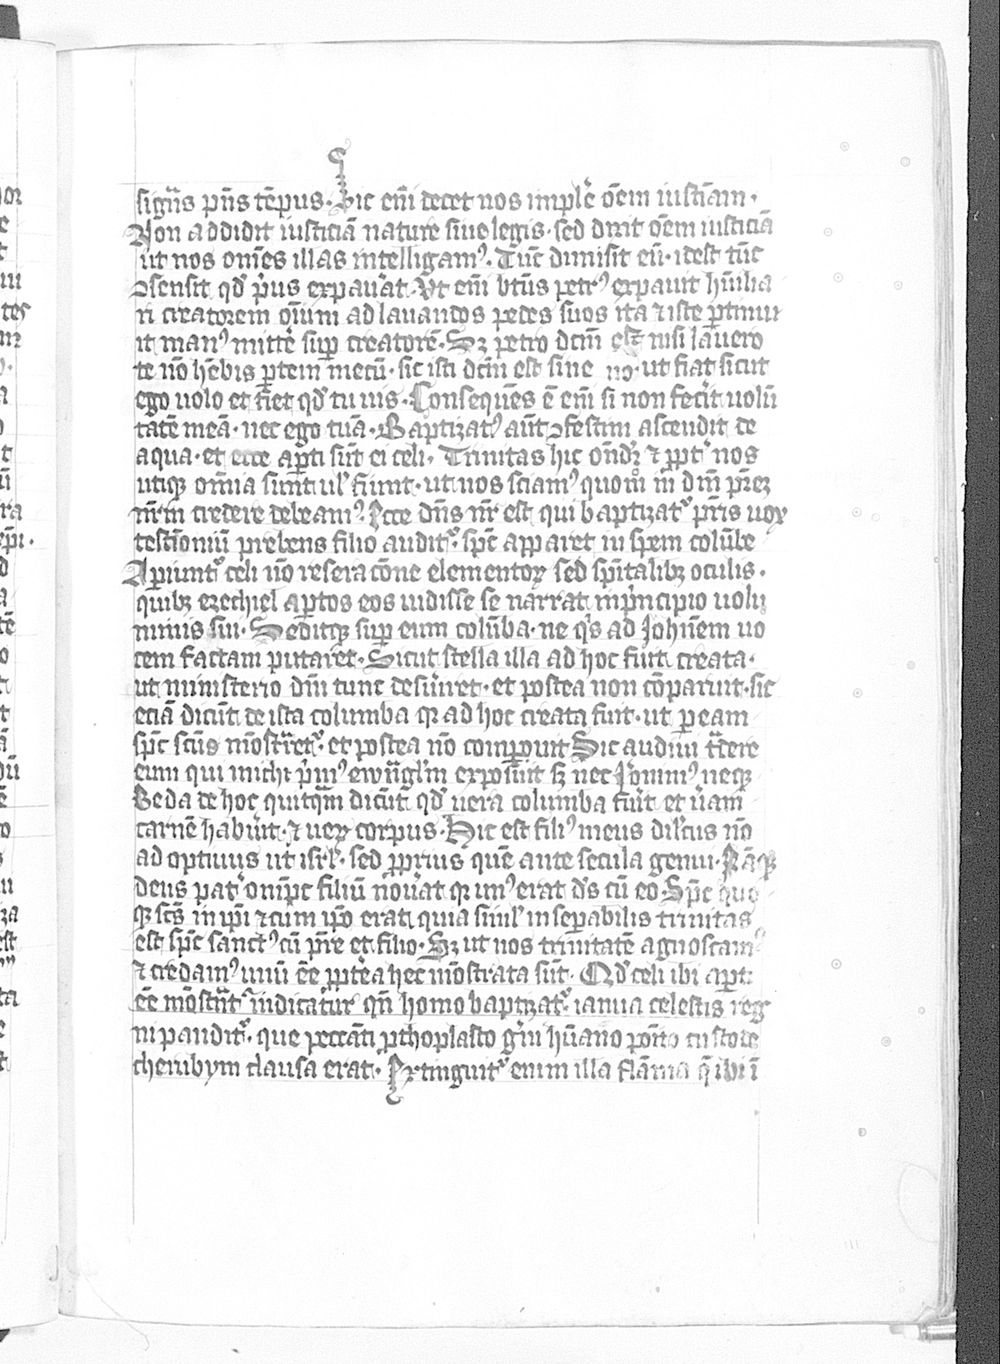 signās pn̄s tēpus. Sic em̄ decet nos implē oēm iustīam.
Non addidit iusticiā nature siue legis. sed dixit oēm iusticiā
ut nos omēs illas intelligamꝰ. Tūc dimisit eū. idest tūc
ꝯsensit qd̓ pͥus expauat̓. Vt em̄ btūs petrꝰ expauit hūilia
ri creatorem oīum ad lauandos pedes suos ita ⁊ iste ꝑtimu
it manꝰ mittē suꝑ creatorē. Sꝫ petro dcm̄ est nisi lauero
te nō hēbis ꝑtem mecū. sic isti dcm̄ est sine no. ut fiat sicut
ego uolo et fiet qd̓ tu uis. Consequēs ē em̄ si non fecit̓ uolū
tatē meā. nec ego tuā. Baptizatꝰ aūt ꝯfestim ascendit de
aqua. et ecce aꝑti sūt ei celi. Trinitas hic ondꝝ̄ ⁊ ꝓpt̓ nos
utiqꝫ omīa sunt ul̓ fiunt. ut nos sciamꝰ quom̊ in dm̄ pr̄eꝫ
nr̄m credere debeamꝰ. Ecce dn̄s nr̄ est qui baptizat᷑ pr̄is uox
testīoniū prebens filio audit᷑. spc̄ apparet in spem colūbe
Aꝑiunt᷑ celi nō reseracōne elementoꝝ sed spīritalibꝫ oculis.
quibꝫ ezechiel aꝑtos eos uidisse se narrat inpͥncipio uolu
minis sui. Seditqꝫ suꝑ eum colūba. ne qͥs ad Johēm uo
cem factam putaret. Sicut stella illa ad hoc fuit creata.
ut ministerio dn̄i tunc desūiret. et postea non cōparuit. sic
eciā dicūt de ista columba qꝛ ad hoc creata fuit. ut ꝑ eam
spc̄ scūs mōstret᷑. et postea nō comꝑuit Sic audiui t̓dere
eum qui michi pͥmꝰ ewāgl̓m exposuit sꝫ nec Jeronimꝰ neqꝫ
Beda de hoc quitqͣm dicūt qd̓ uera columba fuit̓ et uām
carnē habuit̓. ⁊ ueꝝ corpus. Hic est filiꝰ meus dil̓cus nō
ad optiuus ut isrl̓. sed ꝓprius quē ante secula genui.
deus pat̓ onīpc̄ filiū nōuat̓ qꝛ imꝰ erat ds̓ cū eo. Spc̄ quo
qꝫ sc̄s in ip̄i ⁊ cum ip̄o erat quia simul̓ inseꝑabilis trinitas
est spc̄ sanctꝰ cū pr̄e et filio. Sꝫ ut nos trinitatē agnoscamꝰ
⁊ credamꝰ unū ēe ꝓpt̓ea hec mōstrata sūt. Qd̓ celi ibi aꝑti
ēe mōstrāt᷑ indicatur qn̄ homo baptizat᷑ ianua celestis reg
ni pandit᷑. que peccāti ꝓthoplasto gn̄i hūano posito custode
cherubym clausa erat. Extinguit᷑ enim illa flāma q̄ ibi ī